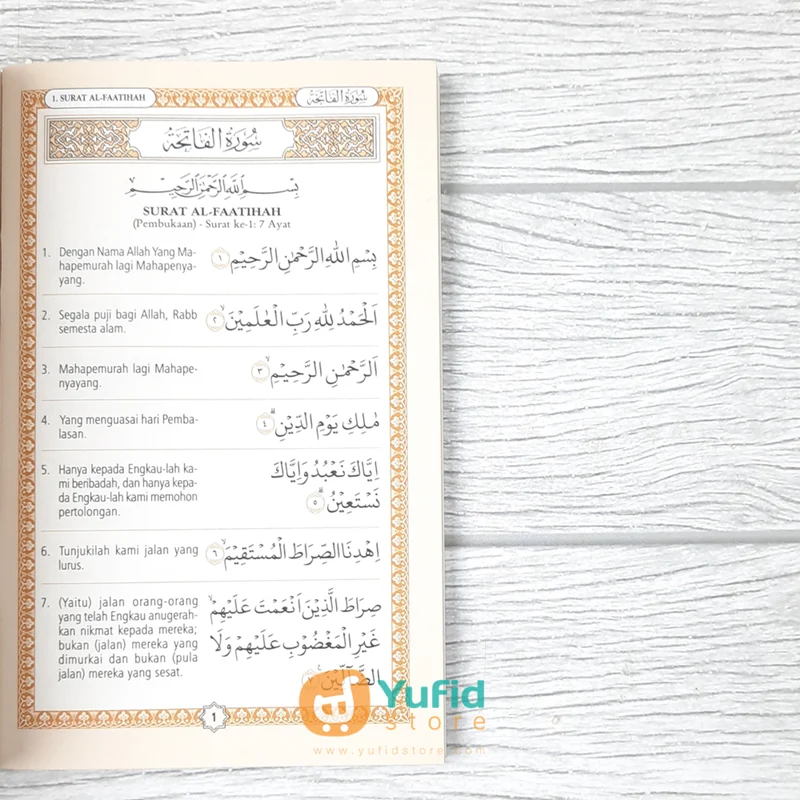 1. SURAT AL-FAATIHAH
سُورَةُ الفَاتِحَة
سُورَةُ الفَاتِحَة
بِسْمِ اللَّهِ الرَّحْمَنِ الرَّحِيمِ
SURAT AL-FAATIHAH
(Pembukaan) - Surat ke-1: 7 Ayat
1. Dengan Nama Allah Yang Ma-
hapemurah lagi Mahapenya-
yang.
بِسْمِ اللهِ الرَّحْمٰنِ الرَّحِيْمِ ١
2. Segala puji bagi Allah, Rabb
semesta alam.
اَلْحَمْدُ لِلّٰهِ رَبِّ الْعٰلَمِيْنَۙ ٢
3. Mahapemurah lagi Mahape-
nyayang.
اَلرَّحْمٰنِ الرَّحِيْمِۙ ٣
4. Yang menguasai hari Pemba-
lasan.
مٰلِكِ يَوْمِ الدِّيْنِۗ ٤
5. Hanya kepada Engkau-lah ka-
mi beribadah, dan hanya kepa-
da Engkau-lah kami memohon
pertolongan.
اِيَّاكَ نَعْبُدُ وَاِيَّاكَ
نَسْتَعِيْنُۗ ٥
6. Tunjukilah kami jalan yang
lurus.
اِهْدِنَا الصِّرَاطَ الْمُسْتَقِيْمَۙ ٦
7. (Yaitu) jalan orang-orang
yang telah Engkau anugerah-
kan nikmat kepada mereka;
bukan (jalan) mereka yang
dimurkai dan bukan (pula
jalan) mereka yang sesat.
صِرَاطَ الَّذِيْنَ اَنْعَمْتَ عَلَيْهِمْۙ
غَيْرِ الْمَغْضُوْبِ عَلَيْهِمْ وَلَا
الضَّاۤلِّيْنَ ٧
1
Yufid
store
www.yufidstore.com